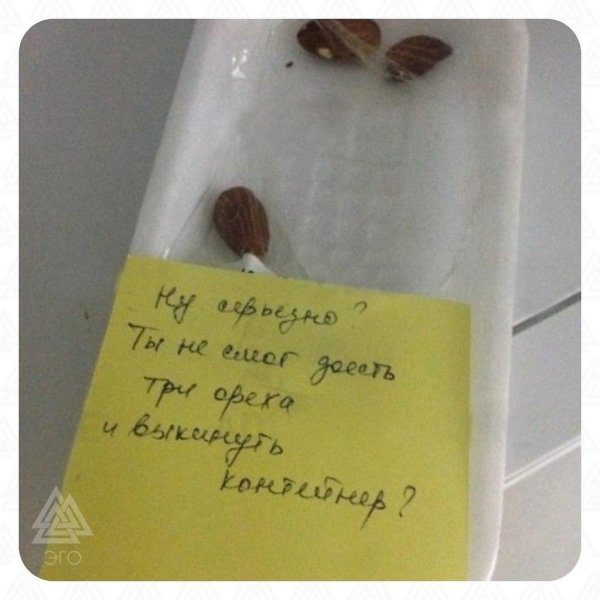 Ну серьезно?
Ты не смог доесть
три ореха
и выкинуть
контейнер?
ЭГО